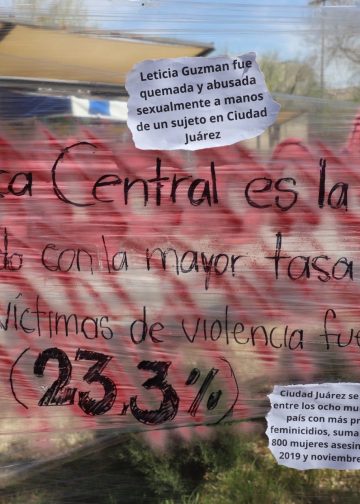 Leticia Guzman fue
quemada y abusada
sexualmente a manos
de un sujeto en Ciudad
Juárez
Central es la
con la mayor tasa
víctimas de violencia
(23.3%)
Ciudad Juárez se
entre los ocho
país con más
feminicidios, suma
800 mujeres
2019 y